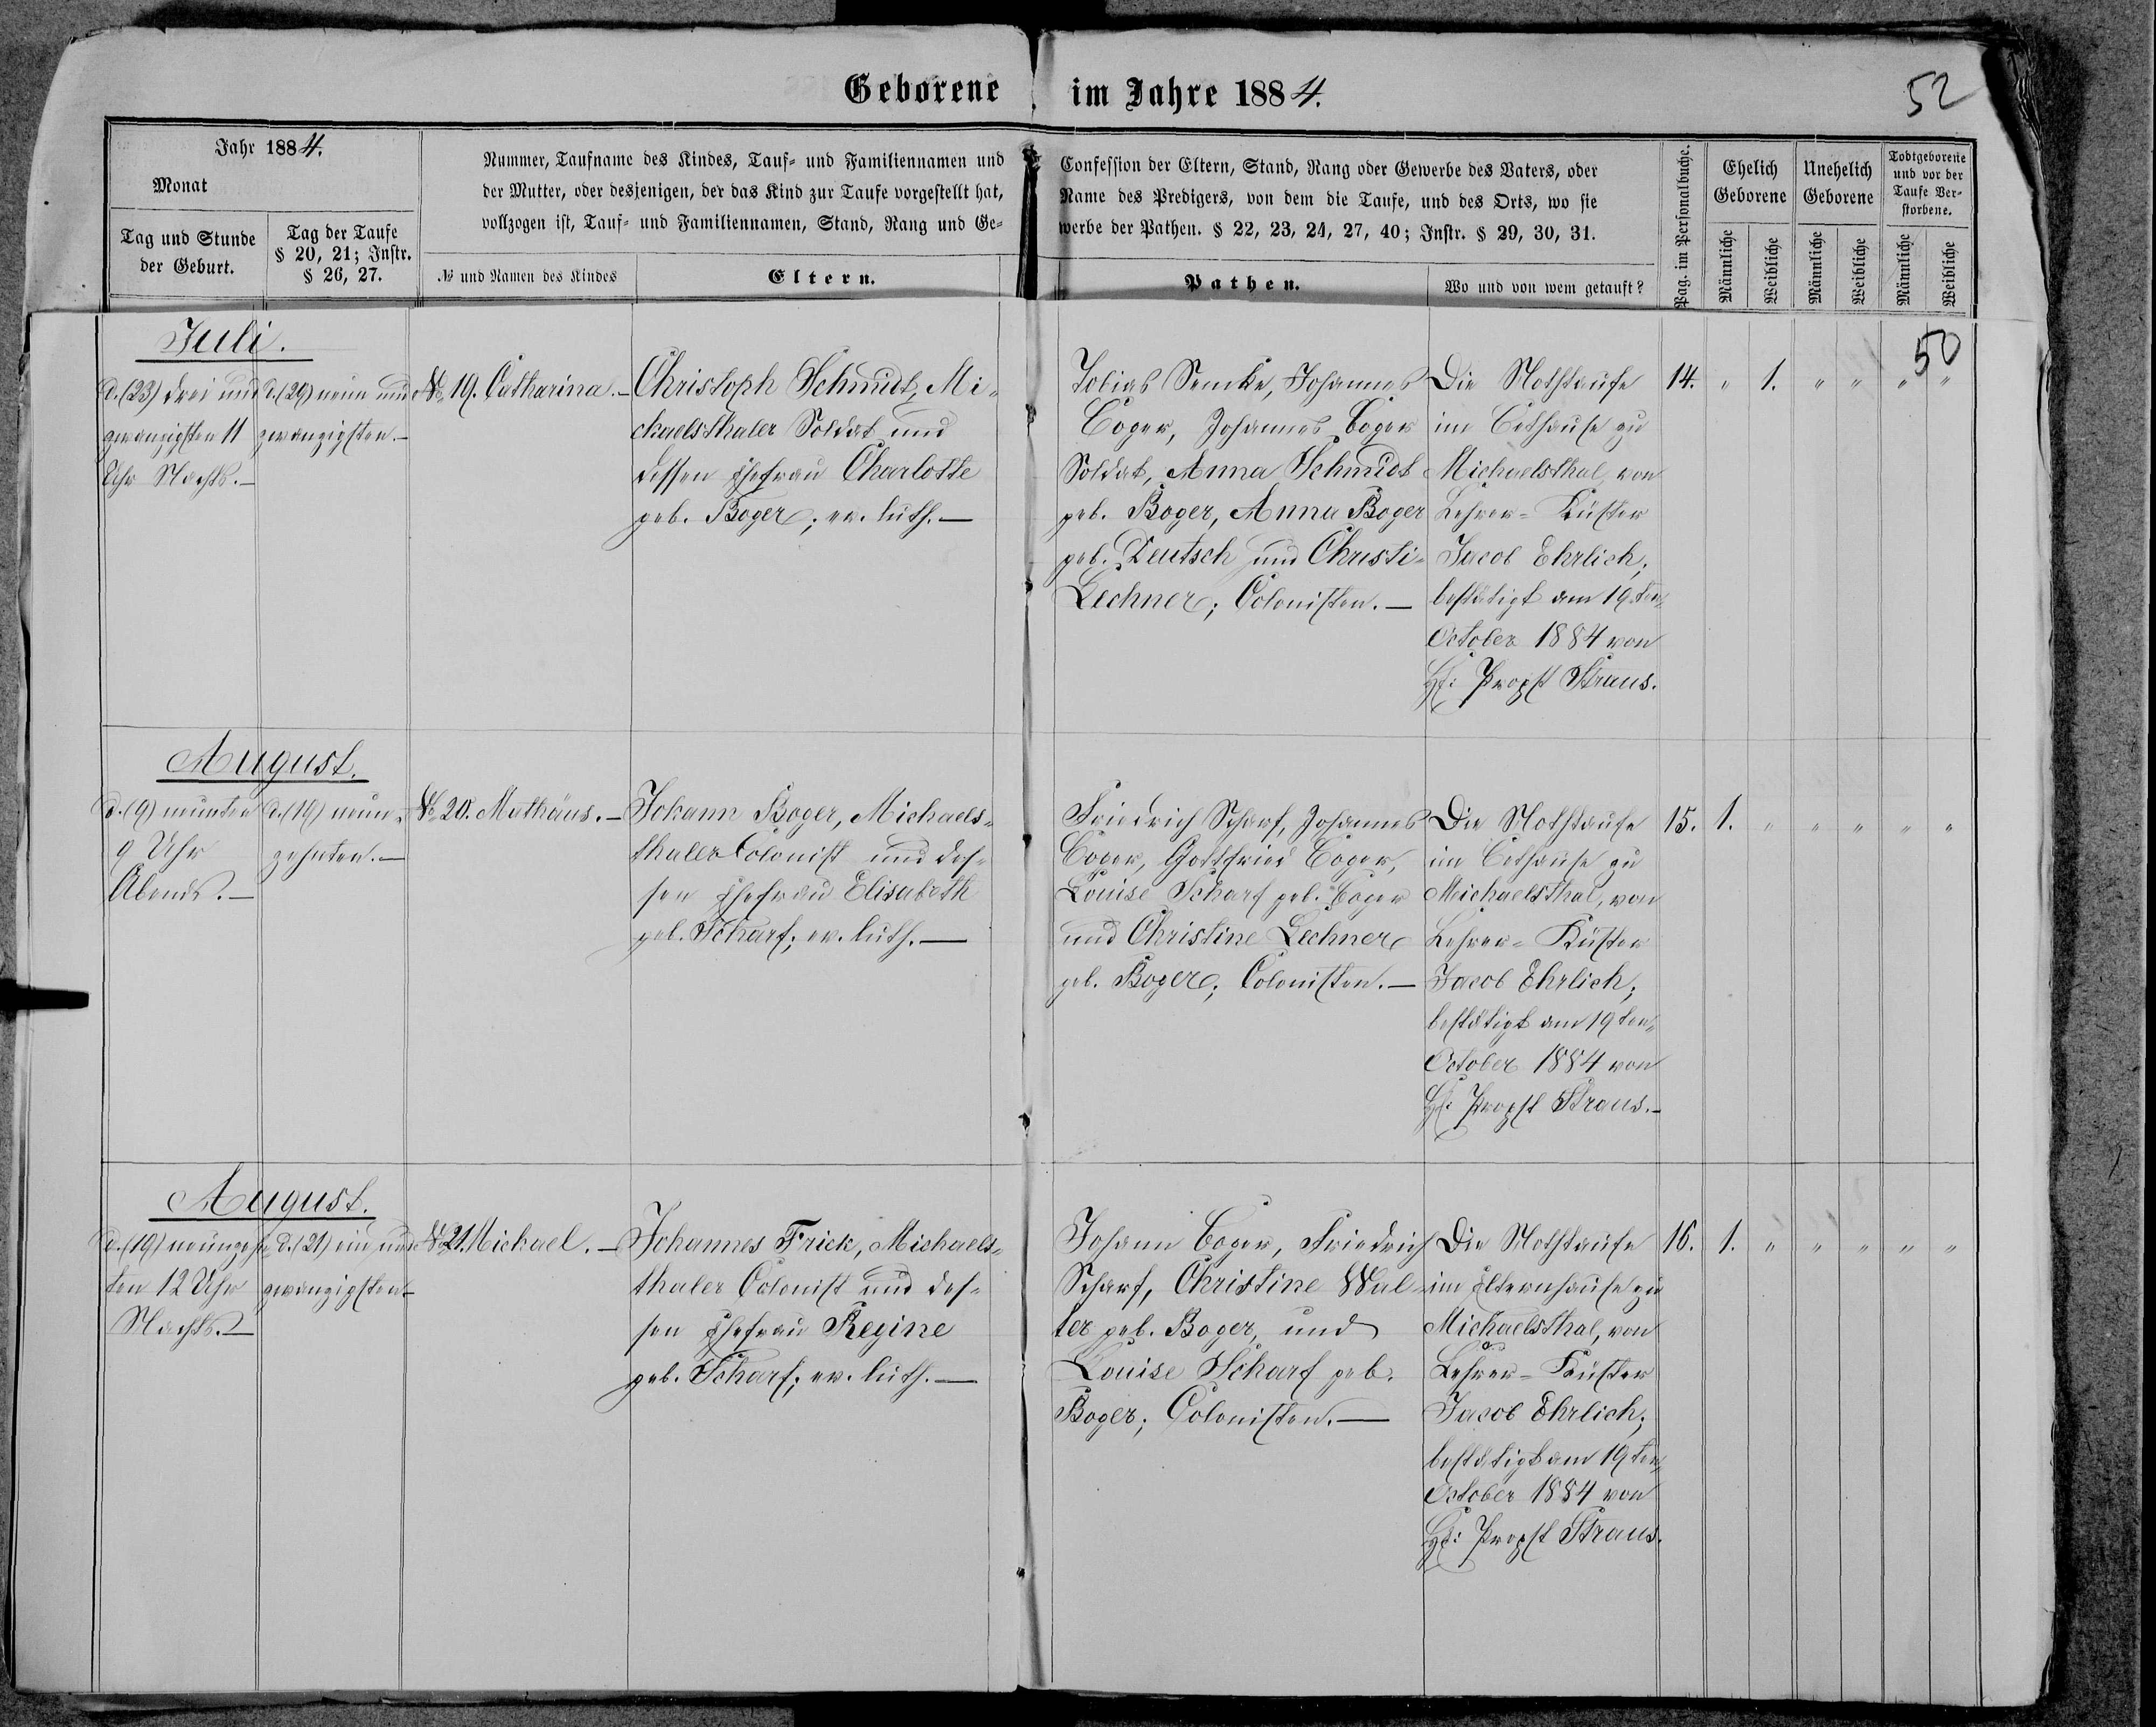 Geborene im Jahre 1884.
52
Jahr 1884.
Monat
Tag und Stunde
der Geburt.
Tag der Taufe
§ 20, 21; Instr.
§ 26, 27.
Nummer, Taufname des Kindes, Tauf- und Familiennamen und
der Mutter, oder desjenigen, der das Kind zur Taufe vorgestellt hat,
vollzogen ist, Tauf- und Familiennamen, Stand, Rang und Ge-
№ und Namen des Kindes
Eltern.
Confession der Eltern, Stand, Rang oder Gewerbe des Vaters, oder
Name des Predigers, von dem die Taufe, und des Orts, wo sie
werbe der Pathen. § 22, 23, 24, 27, 40; Instr. § 29, 30, 31.
Pathen.
Wo und von wem getauft?
Pag. im Personalbuche.
Ehelich
Geborene
Unehelich
Geborene
Todtgeborene
und vor der
Taufe Ver-
storbene.
Männliche
Weibliche
Männliche
Weibliche
Männliche
Weibliche
50
Juli.
d. (23) drei und
zwanzigsten 11
Uhr Nachts.—
d. (29) neun und
zwanzigsten.—
№ 19. Catharina.—
Christoph Schmidt, Mi-
chaelsthaler Soldat und
dessen Ehefrau Charlotte
geb. Boger; ev. luth.—
Tobias Semke, Johannes
Boger, Johannes Boger
Soldat, Anna Schmidt
geb. Boger, Anna Boger
geb. Deutsch und Christi-
Lechner; Colonisten.—
Die Nothtaufe
im Bethause zu
Michaelsthal, von
Lehrer-Küster
Jacob Ehrlich;
bestätigt am 19ten
October 1884 von
H: Propst Straus.
14. " 1. " " " "
August.
d. (9) neunten
9 Uhr
Abends.—
d. (19) neun-
zehnten.—
№ 20. Mathäus.—
Johann Boger, Michaels-
thaler Colonist und des-
sen Ehefrau Elisabeth
geb. Scharf; ev. luth.—
Friedrich Scharf, Johannes
Boger, Gottfried Boger,
Louise Scharf geb. Boger
und Christine Lechner
geb. Boger; Colonisten.—
Die Nothtaufe
im Bethause zu
Michaelsthal, von
Lehrer-Küster
Jacob Ehrlich;
bestätigt am 19ten
October 1884 von
H: Propst Straus.—
15. 1. " " " " "
August.
d. (19) neunzehn-
ten 12 Uhr
Nachts.—
d. (21) ein und
zwanzigsten—
№ 21. Michael.—
Johannes Frick, Michaels-
thaler Colonist und des-
sen Ehefrau Regine
geb. Scharf; ev. luth.—
Johann Boger, Friedrich
Scharf, Christine Wal-
ter geb. Boger, und
Louise Scharf geb.
Boger; Colonisten.—
Die Nothtaufe
im Elternhause zu
Michaelsthal, von
Lehrer-Küster
Jacob Ehrlich;
bestätigt am 19ten
October 1884 von
H: Propst Straus.
16. 1. " " " " "